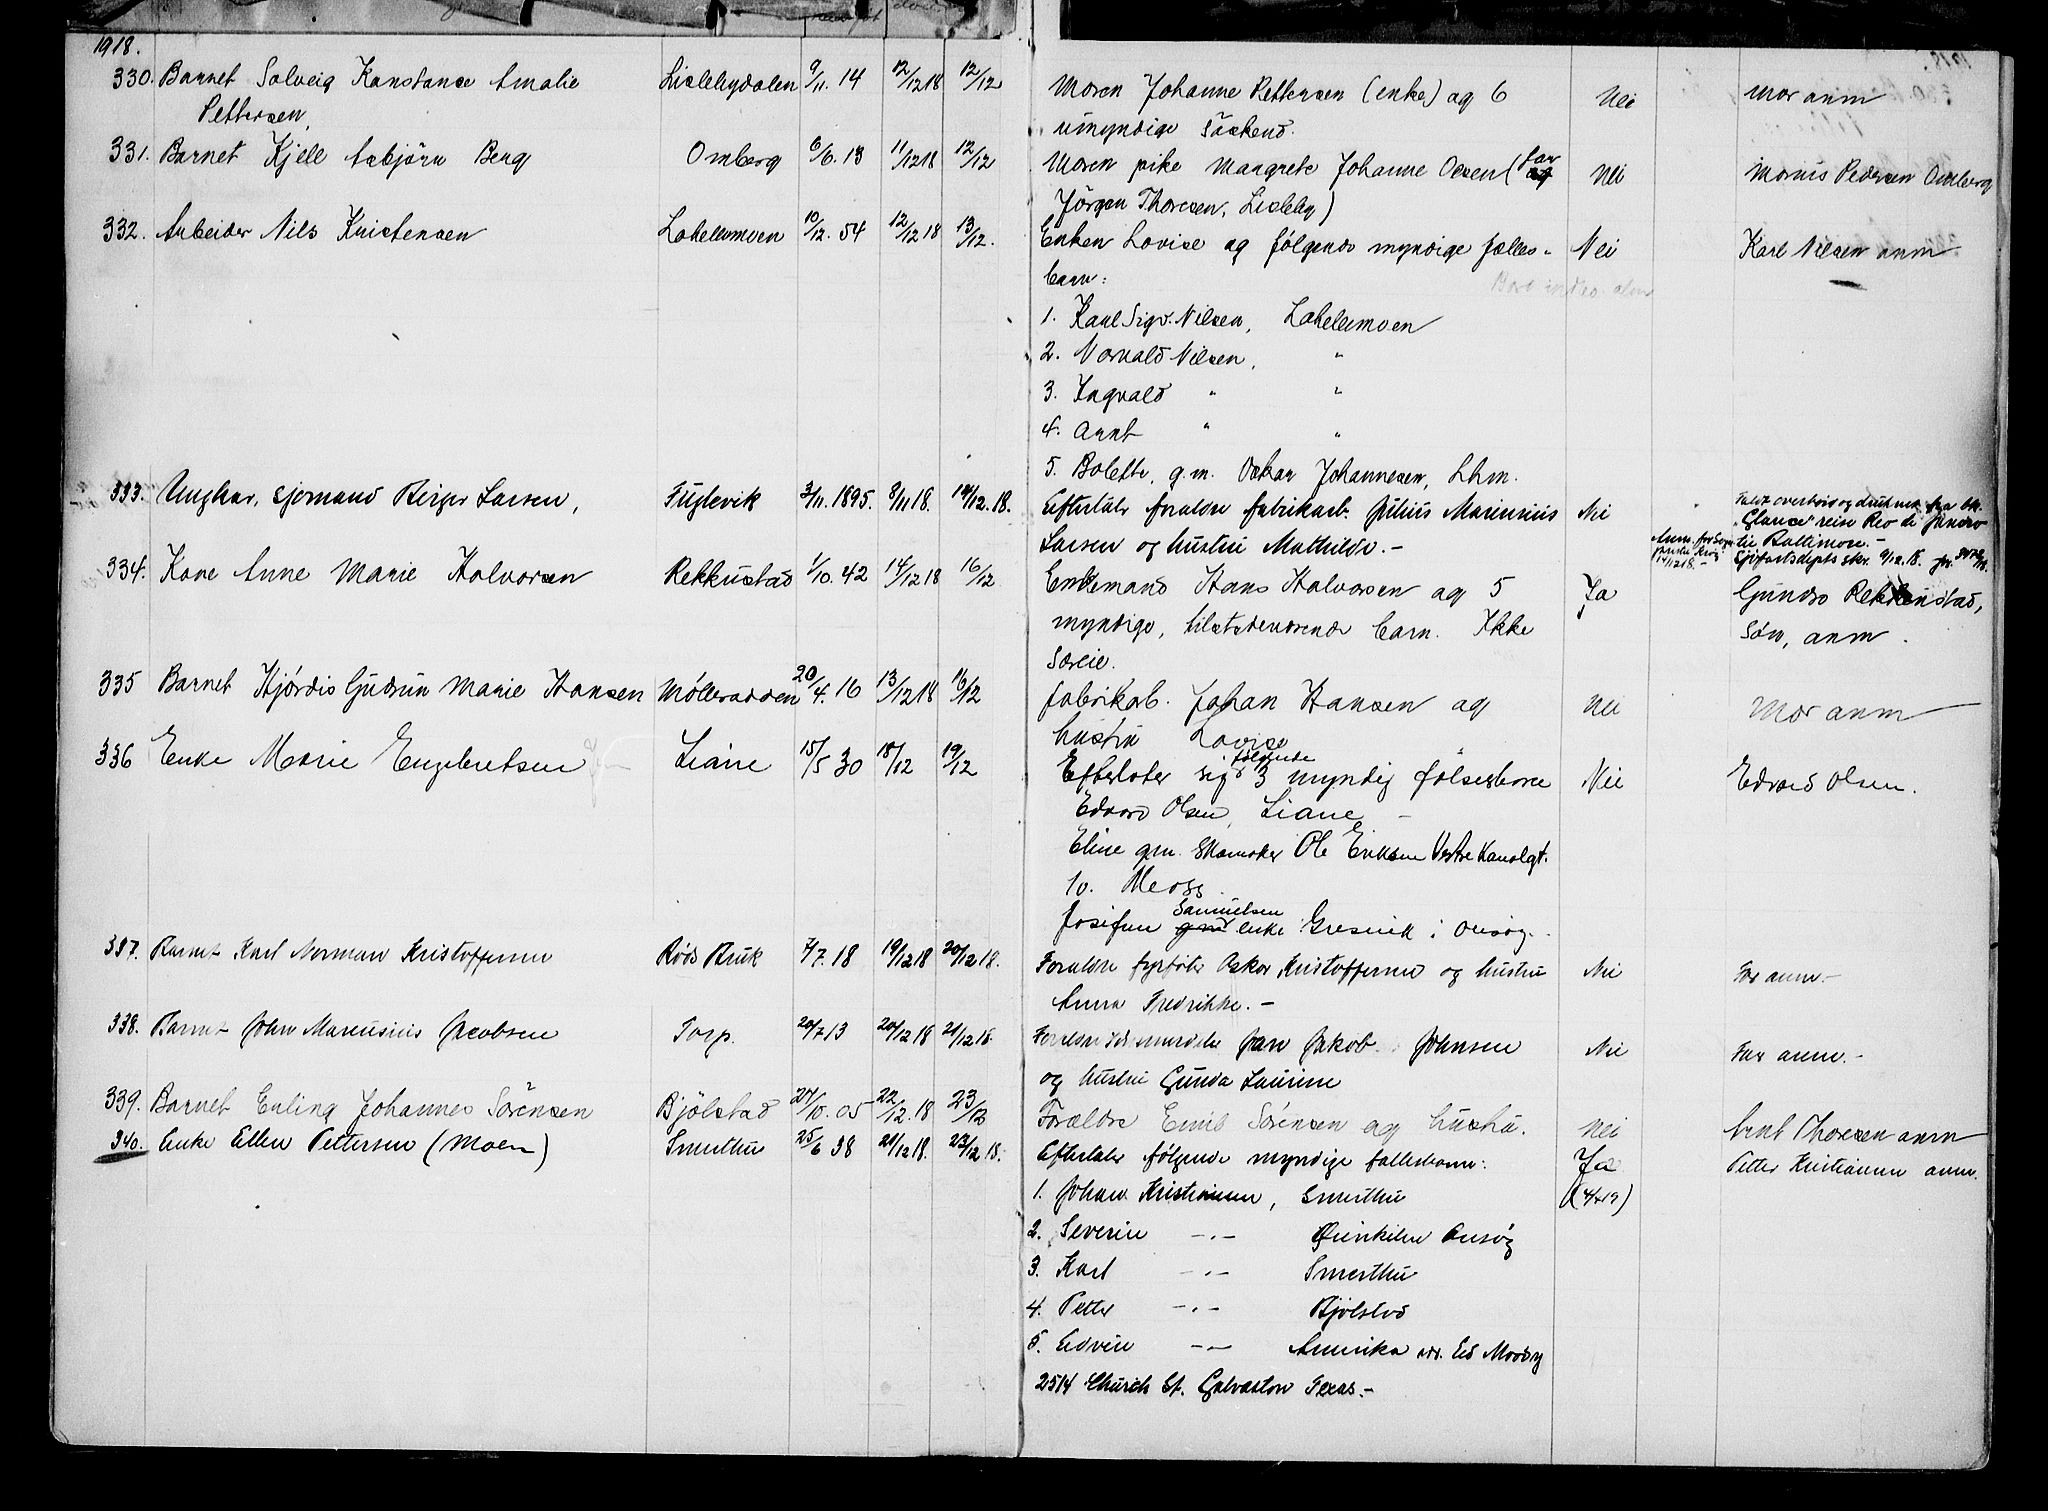 1918.
330. Barnet Solveig Konstanse Amalie Pettersen, Lislebydalen 9/11. 14 12/12 18 12/12 Moren Johanne Pettersen (enke) og 6 Nei Mor anm
umyndige Søskend.
331. Barnet Kjell Asbjørn Berg Omberg 6/6. 13 11/12 18 12/12 Moren pike Margrete Johanne Olsen (far Nei Marius Pedersen Omberg
Jørgen Thoresen, Lisleby)
332. Arbeider Nils Kristensen Lahellemoen 10/12. 54 12/12 18 13/12. Enken Lovise og følgende myndige fælles- Nei Karl Nilsen anm
barn:
1. Karl Sigv. Nilsen, Lahellemoen
2. Norvald Nilsen, "
3. Ingvald " "
4. Arnt " "
5. Bolette, g.m. Oskar Johannesen, Lhm.
333. Ungkar, sjømand Birger Larsen, Fuglevik 3/11. 1895. 8/11 18. 14/12. 18. Efterlater forældre fabrikarb. Julius Marinsius Nei Falt overbord og druknet fra bk.
"Glance" reise Rio de Janeiro
Larsen og hustru Mathilde. - til Baltimore. -
Sjøfartsdepts skr. 9/12. 18.
334. Kone Anne Marie Halvorsen Rekkustad 1/10. 42 14/12 18 16/12 Enkemand Hans Halvorsen og 5 Ja Gunds Rekkustad,
myndige, tilstedeværende barn. Ikke søn, anm.
Særeie.
335 Barnet Hjørdis Gudrun Marie Hansen Mølleradden 20/4. 16 13/12 18 16/12 fabrikarb. Johan Hansen og Nei Mor anm
hustru Lovise
336 Enke Marie Engebretsen Liane 15/5 30 18/12 19/12 Efterlater sig følgende 3 myndig følesbarn Nei Edvard Olsen.
Edvard Olsen, Liane -
Eline gm. Skomaker Ole Eriksen Vestre Kanalgt.
10. Moss.
Josefine Samuelsen gm enke Gresvik i Onsøy.
337. Barnet Karl Norman Kristoffersen Røds Bruk 7/7. 18 19/12 18 20/12 18. Forældre fyrbøter Oskar Kristoffersen og hustru Nei Far anm. -
Anna Fredrikke. -
338. Barnet John Mariusius Jacobsen Torp. 20/7 13 20/12 18 21/12 18. Forældre Jan Jakob Johnsen Nei Far anm. -
og hustru Gunda Laurine
339. Barnet Erling Johannes Sørensen Bjølstad 24/10. 05 22/12. 18 23/12 Forældre Emil Sørensen og hustru. Nei Arnt Thoresen anm
340. Enke Ellen Pettersen (Moen) Smerthu 25/6 38 21/12 18. 23/12 18. Efterlater følgende myndige fællesbarn: Ja Petter Kristiansen anm.
1. Johan Kristiansen, Smerthu
2. Severin -"- Onsøy
3. Karl -"- Smerthu
4. Petter -"- Bjølstad
5. Edvin -"- Amerika adr. Ed Moody
2514 Church St. Galvaston Texas. -